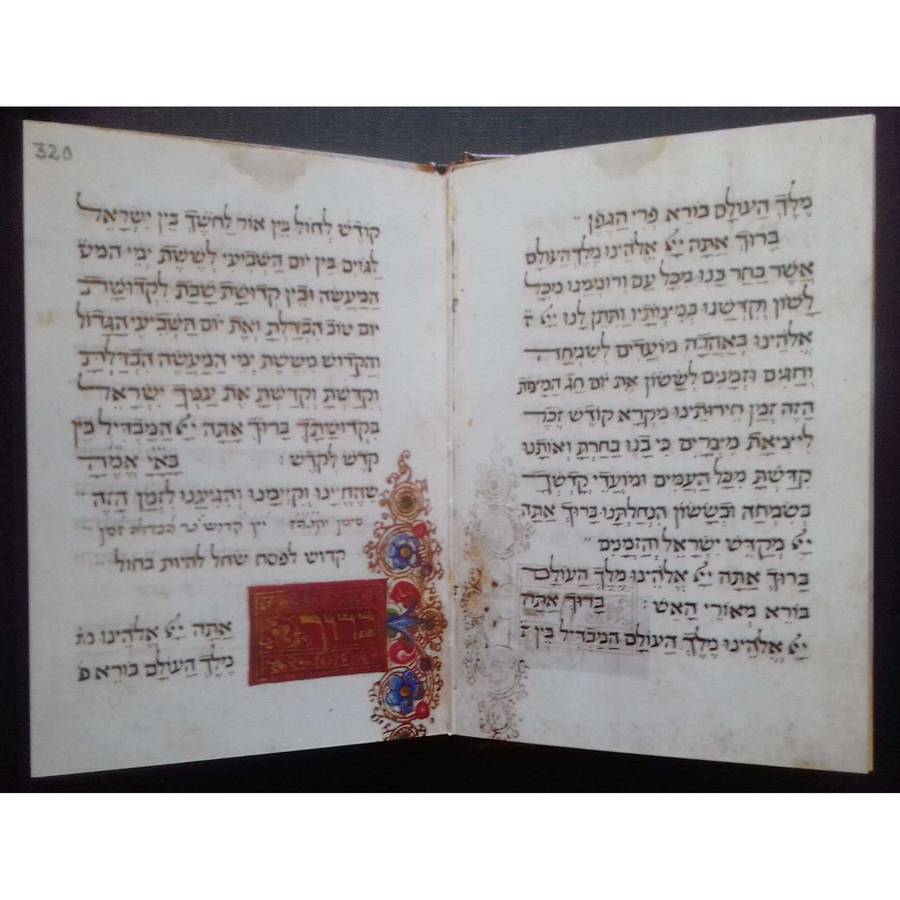 מֶלֶךְ הָעוֹלָם בּוֹרֵא פְּרִי הַגֶּפֶן
בָּרוּךְ אַתָּה יָיָ אֱלֹהֵינוּ מֶלֶךְ הָעוֹלָם
אֲשֶׁר בָּחַר בָּנוּ מִכָּל עַם וְרוֹמְמָנוּ מִכָּל
לָשׁוֹן וְקִדְּשָׁנוּ בְּמִצְוֹתָיו וַתִּתֶּן לָנוּ יָיָ
אֱלֹהֵינוּ בְּאַהֲבָה מוֹעֲדִים לְשִׂמְחָה
וְחַגִּים וּזְמַנִּים לְשָׂשׂוֹן אֶת יוֹם חַג הַמַּצּוֹת
הַזֶּה זְמַן חֵירוּתֵינוּ מִקְרָא קוֹדֶשׁ זֵכֶר
לִיצִיאַת מִצְרַיִם כִּי בָנוּ בָחַרְתָּ וְאוֹתָנוּ
קִדַּשְׁתָּ מִכָּל הָעַמִּים וּמוֹעֲדֵי קָדְשְׁךָ
בְּשִׂמְחָה וּבְשָׂשׂוֹן הִנְחַלְתָּנוּ בָּרוּךְ אַתָּה
יָיָ מְקַדֵּשׁ יִשְׂרָאֵל וְהַזְּמַנִּים
בָּרוּךְ אַתָּה יָיָ אֱלֹהֵינוּ מֶלֶךְ הָעוֹלָם
בּוֹרֵא מְאוֹרֵי הָאֵשׁ : בָּרוּךְ אַתָּה
יָיָ אֱלֹהֵינוּ מֶלֶךְ הָעוֹלָם הַמַּבְדִּיל בֵּין
320
קוֹדֶשׁ לְחוֹל בֵּין אוֹר לַחֹשֶׁךְ בֵּין יִשְׂרָאֵל
לַגּוֹיִם בֵּין יוֹם הַשְּׁבִיעִי לְשֵׁשֶׁת יְמֵי המע
הַמַּעֲשֶׂה וּבֵין קְדוּשַּׁת שַׁבָּת לִקְדוּשַּׁת
יוֹם טוֹב הִבְדַּלְתָּ וְאֶת יוֹם הַשְּׁבִיעִי הַגָּדוֹל
וְהַקָּדוֹשׁ מִשֵּׁשֶׁת יְמֵי הַמַּעֲשֶׂה הִבְדַּלְתָּ
וְקִדַּשְׁתָּ וְקִדַּשְׁתָּ אֶת עַמְּךָ יִשְׂרָאֵל
בִּקְדוּשָּׁתֶךָ בָּרוּךְ אַתָּה יָיָ הַמַּבְדִּיל בֵּין
קֹדֶשׁ לְקֹדֶשׁ : בָּאֵ"יֵ אֱמֶ"הָ
שֶׁהֶחֱיָינוּ וְקִיְּימָנוּ וְהִגִּיעָנוּ לַזְּמַן הַזֶּה
סימן יקנהז יין קדוש נר הבדלה זמן
קדוש לפסח שחל להיות בחול
ברוך
אַתָּה יָיָ אֱלֹהֵינוּ
מֶלֶךְ הָעוֹלָם בּוֹרֵא פ